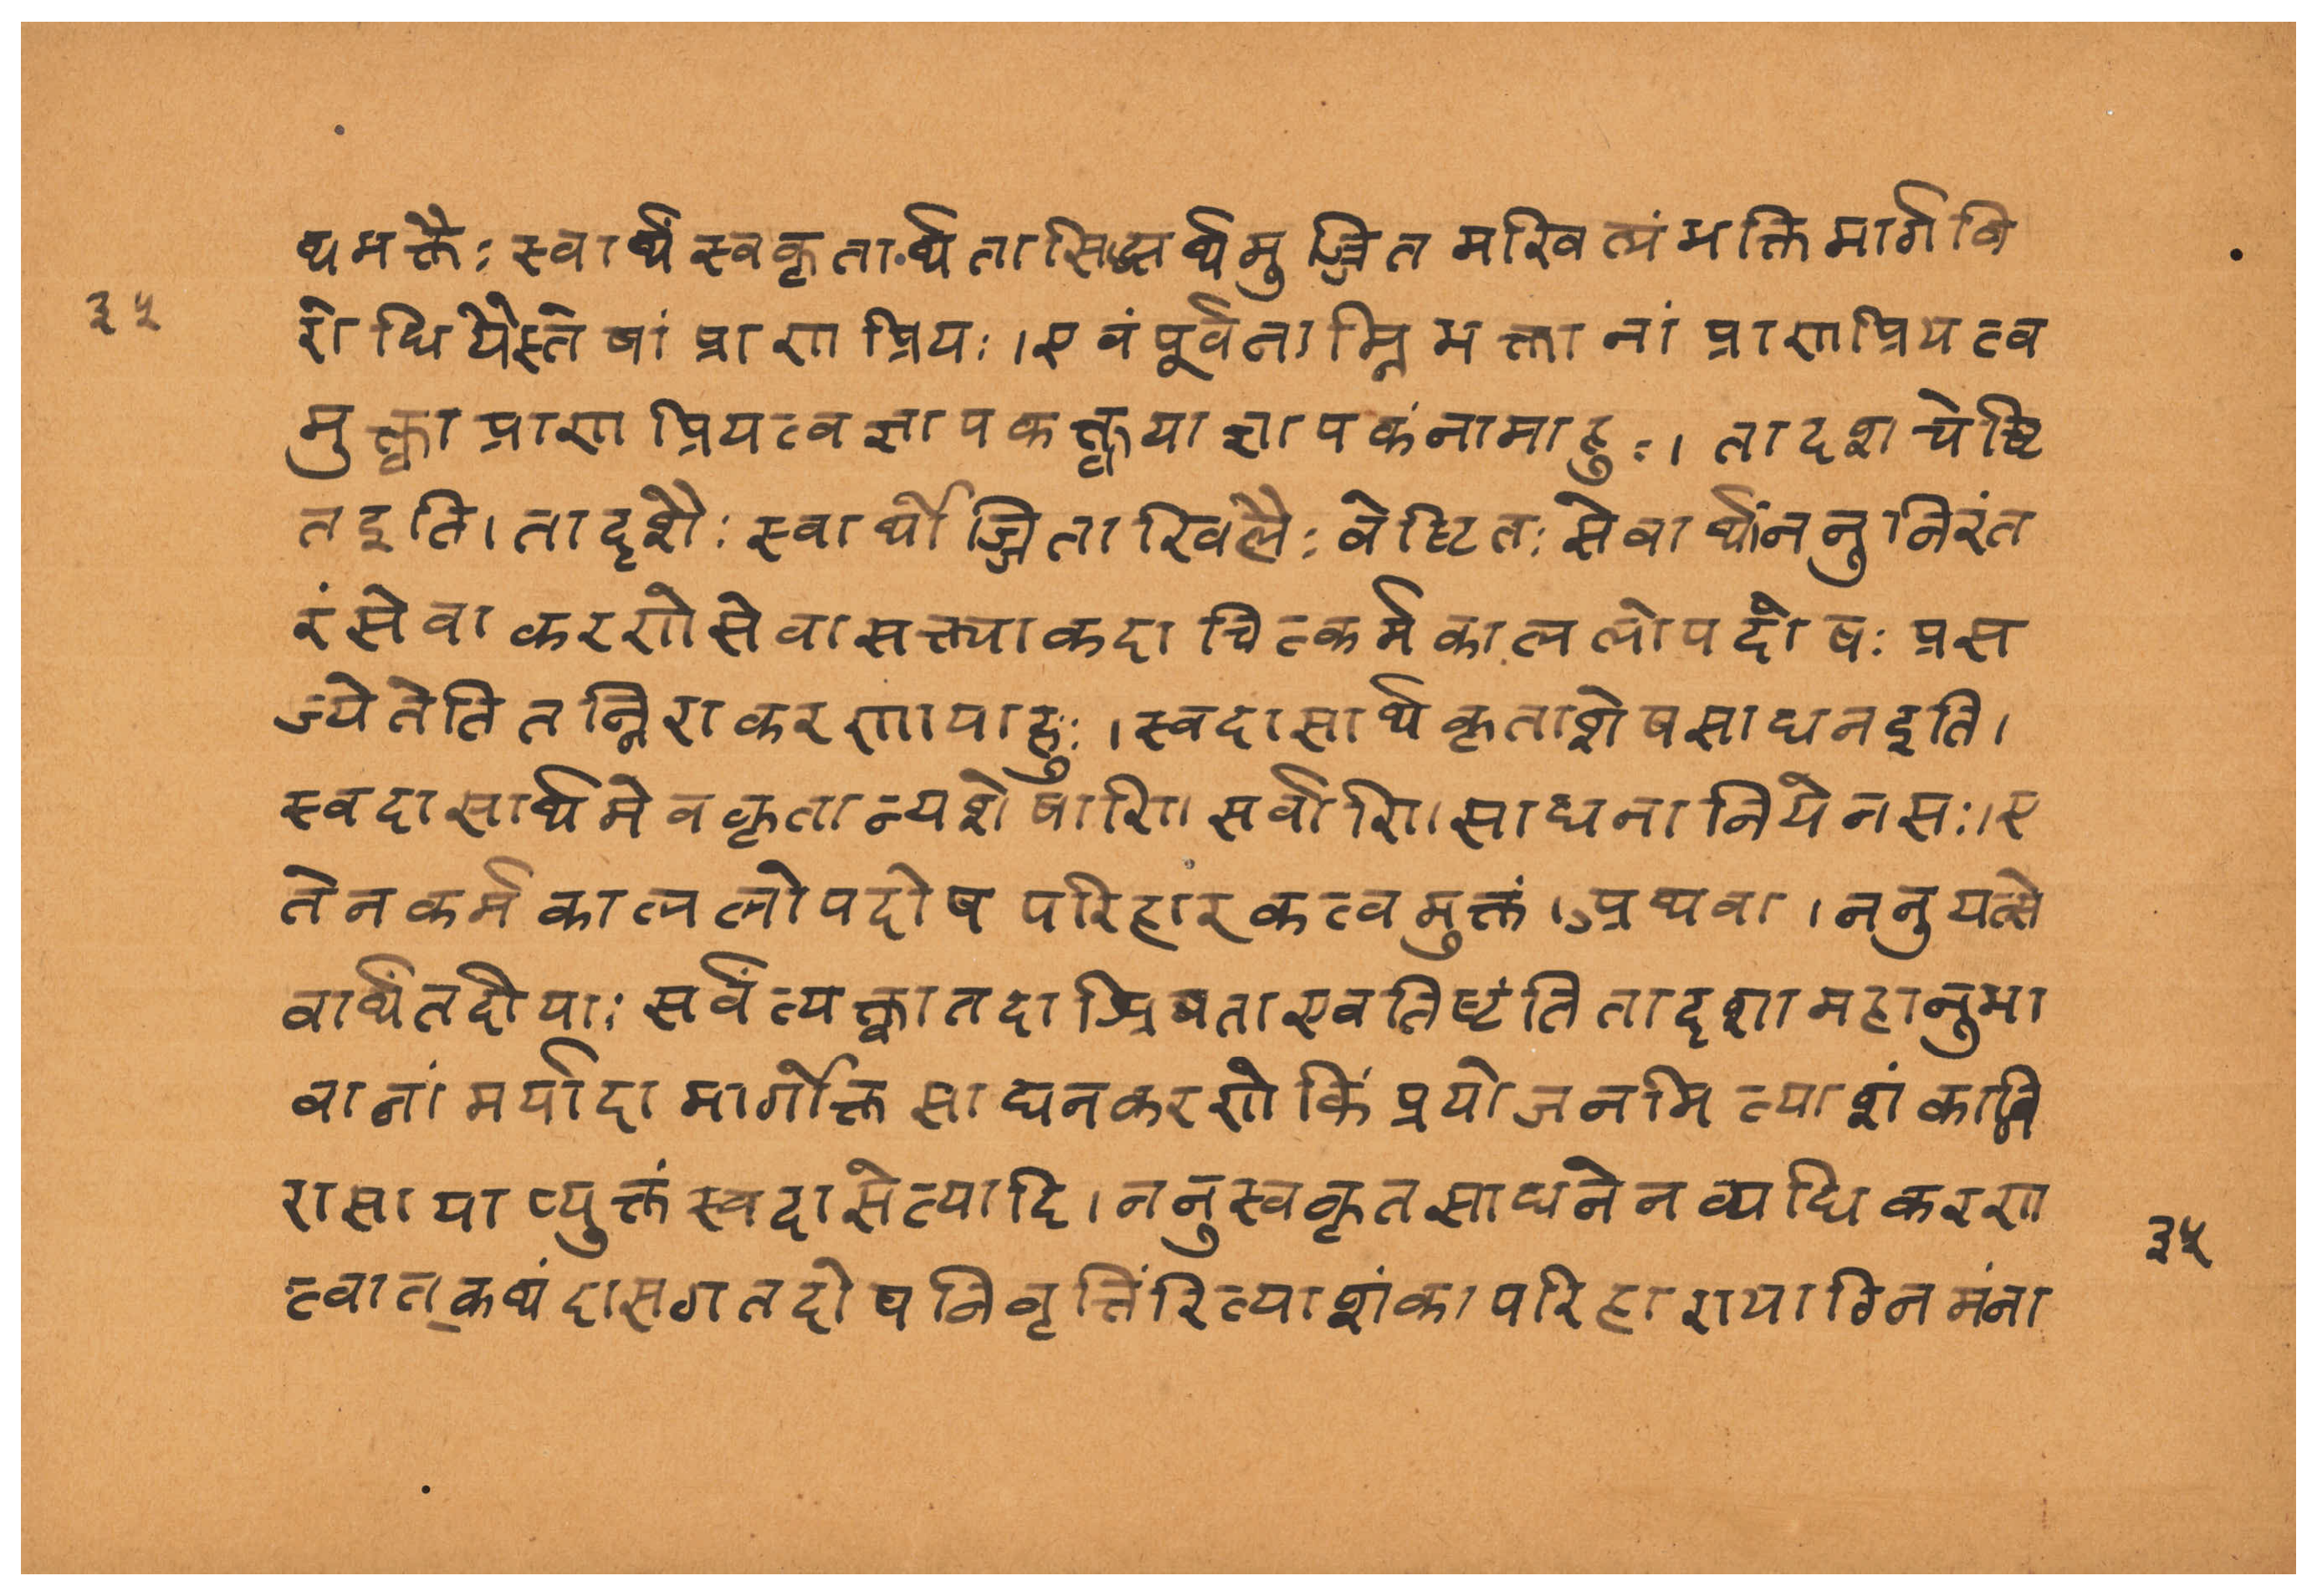 थ भक्तैः स्वार्थं स्वकृतार्थतासिद्ध्यर्थमुज्झितमखिलं भक्तिमार्गवि
३५
रोधि यैस्तेषां प्राणप्रियः । एवं पूर्वनाम्नि भक्तानां प्राणप्रियत्व
मुक्त्वा प्राणप्रियत्वज्ञापककृत्या ज्ञापकं नामाहुः । तादशचेष्टि
त इति । तादृशैः स्वार्थोज्झिताखिलैः वेष्टितः सेवार्थं ननु निरंत
रं सेवाकरणे सेवासक्त्या कदाचित्कर्मकाललोपदोषः प्रस
ज्येतेति तन्निराकरणायाहुः । स्वदासार्थकृताशेषसाधन इति ।
स्वदासार्थमेव कृतान्यशेषाणि सर्वाणि साधनानि येन सः । ए
तेन कर्मकाललोपदोषपरिहारकत्वमुक्तं । अथवा । ननु यत्से
वार्थं तदीयाः सर्वं त्यक्त्वा तदाश्रिता एव तिष्टंति तादृशामहानुभा
वानां मर्यादामार्गोक्तसाधनकरणे किं प्रयोजनमित्याशंकानि
रासायाप्युक्तं स्वदासेत्यादि । ननु स्वकृतसाधनेन व्यधिकरण
त्वात् कथं दासगतदोषनिवृत्तिंरित्याशंकापरिहारायाग्निमंना
३५